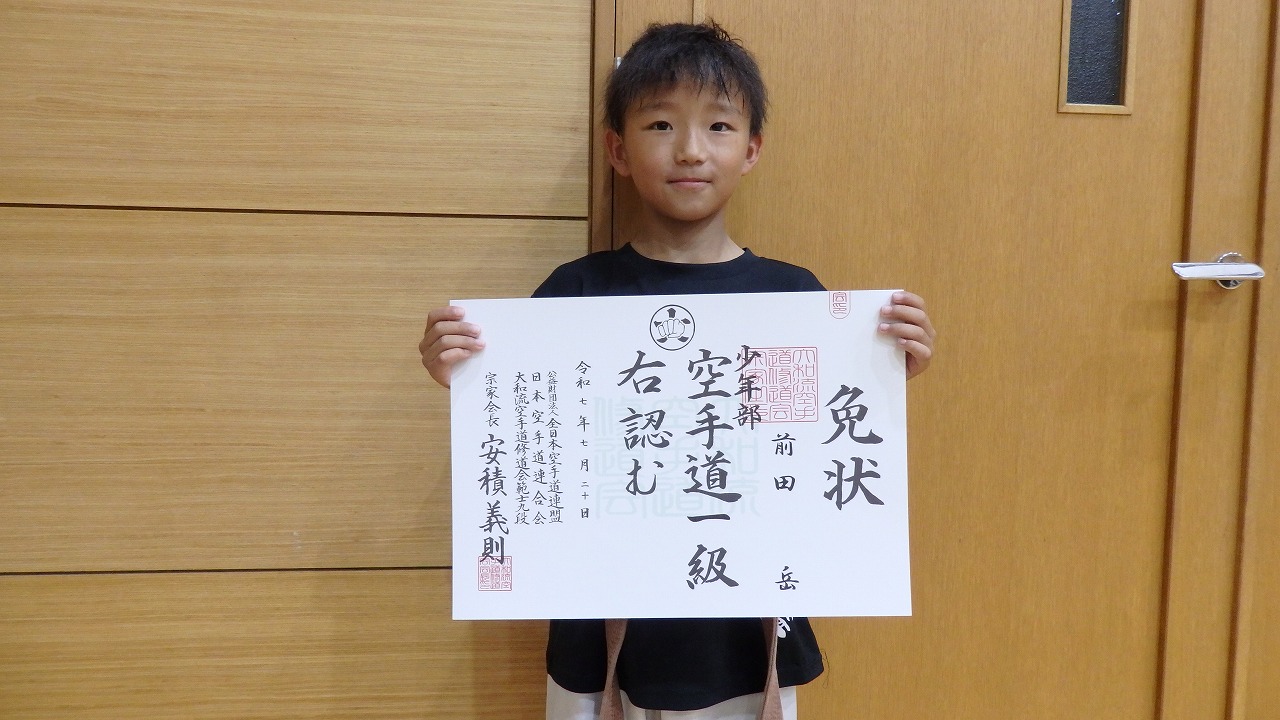 免状
前田 岳
少年部
空手道一級
右認む
令和七年七月二十日
公益財団法人全日本空手道連盟
日本空手道連合会
大和流空手道修道会範士九段
宗家会長 安積義則